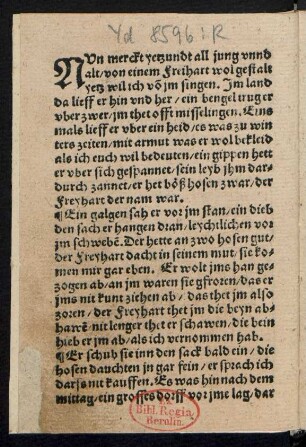 Yd 8596 : R
NUn merckt yetzundt all jung vnnd
alt / von einem Freihart wol gestalt
yetz wil ich vō jm singen. Im land
da lieff er hin vnd her / ein bengel trug er
vber zwer / jm thet offt misselingen. Eins
mals lieff er vber ein heid / es was zu win
ters zeiten / mit armut was er wol bekleid
als ich euch wil bedeuten / ein gippen hett
er vber sich gespannet / sein leyb jhm dar-
durch zannet / er het böß hosen zwar / der
Freyhart der nam war.
¶ Ein galgen sah er vor jm stan / ein dieb
den sach er hangen dran / leychtlichen vor
jm schwebē. Der hette an zwo hosen gut /
der Freyhart dacht in seinem mut / sie ko-
men mir gar eben. Er wolt jms han ge-
zogen ab / an jm waren sie gfroren / das er
jms nit kunt ziehen ab / das thet jm also
zoren / der Freyhart thet jm die beyn ab-
hawē nit lenger thet er schawen / die bein
hieb er jm ab / als ich vernommen hab.
¶ Er schub sie inn den sack bald ein / die
hosen dauchten jn gar fein / er sprach ich
darfs nit kauffen. Es was hin nach dem
mittag / ein grosses dorff vor jme lag / dar
Bibl. Regia
Berolin.